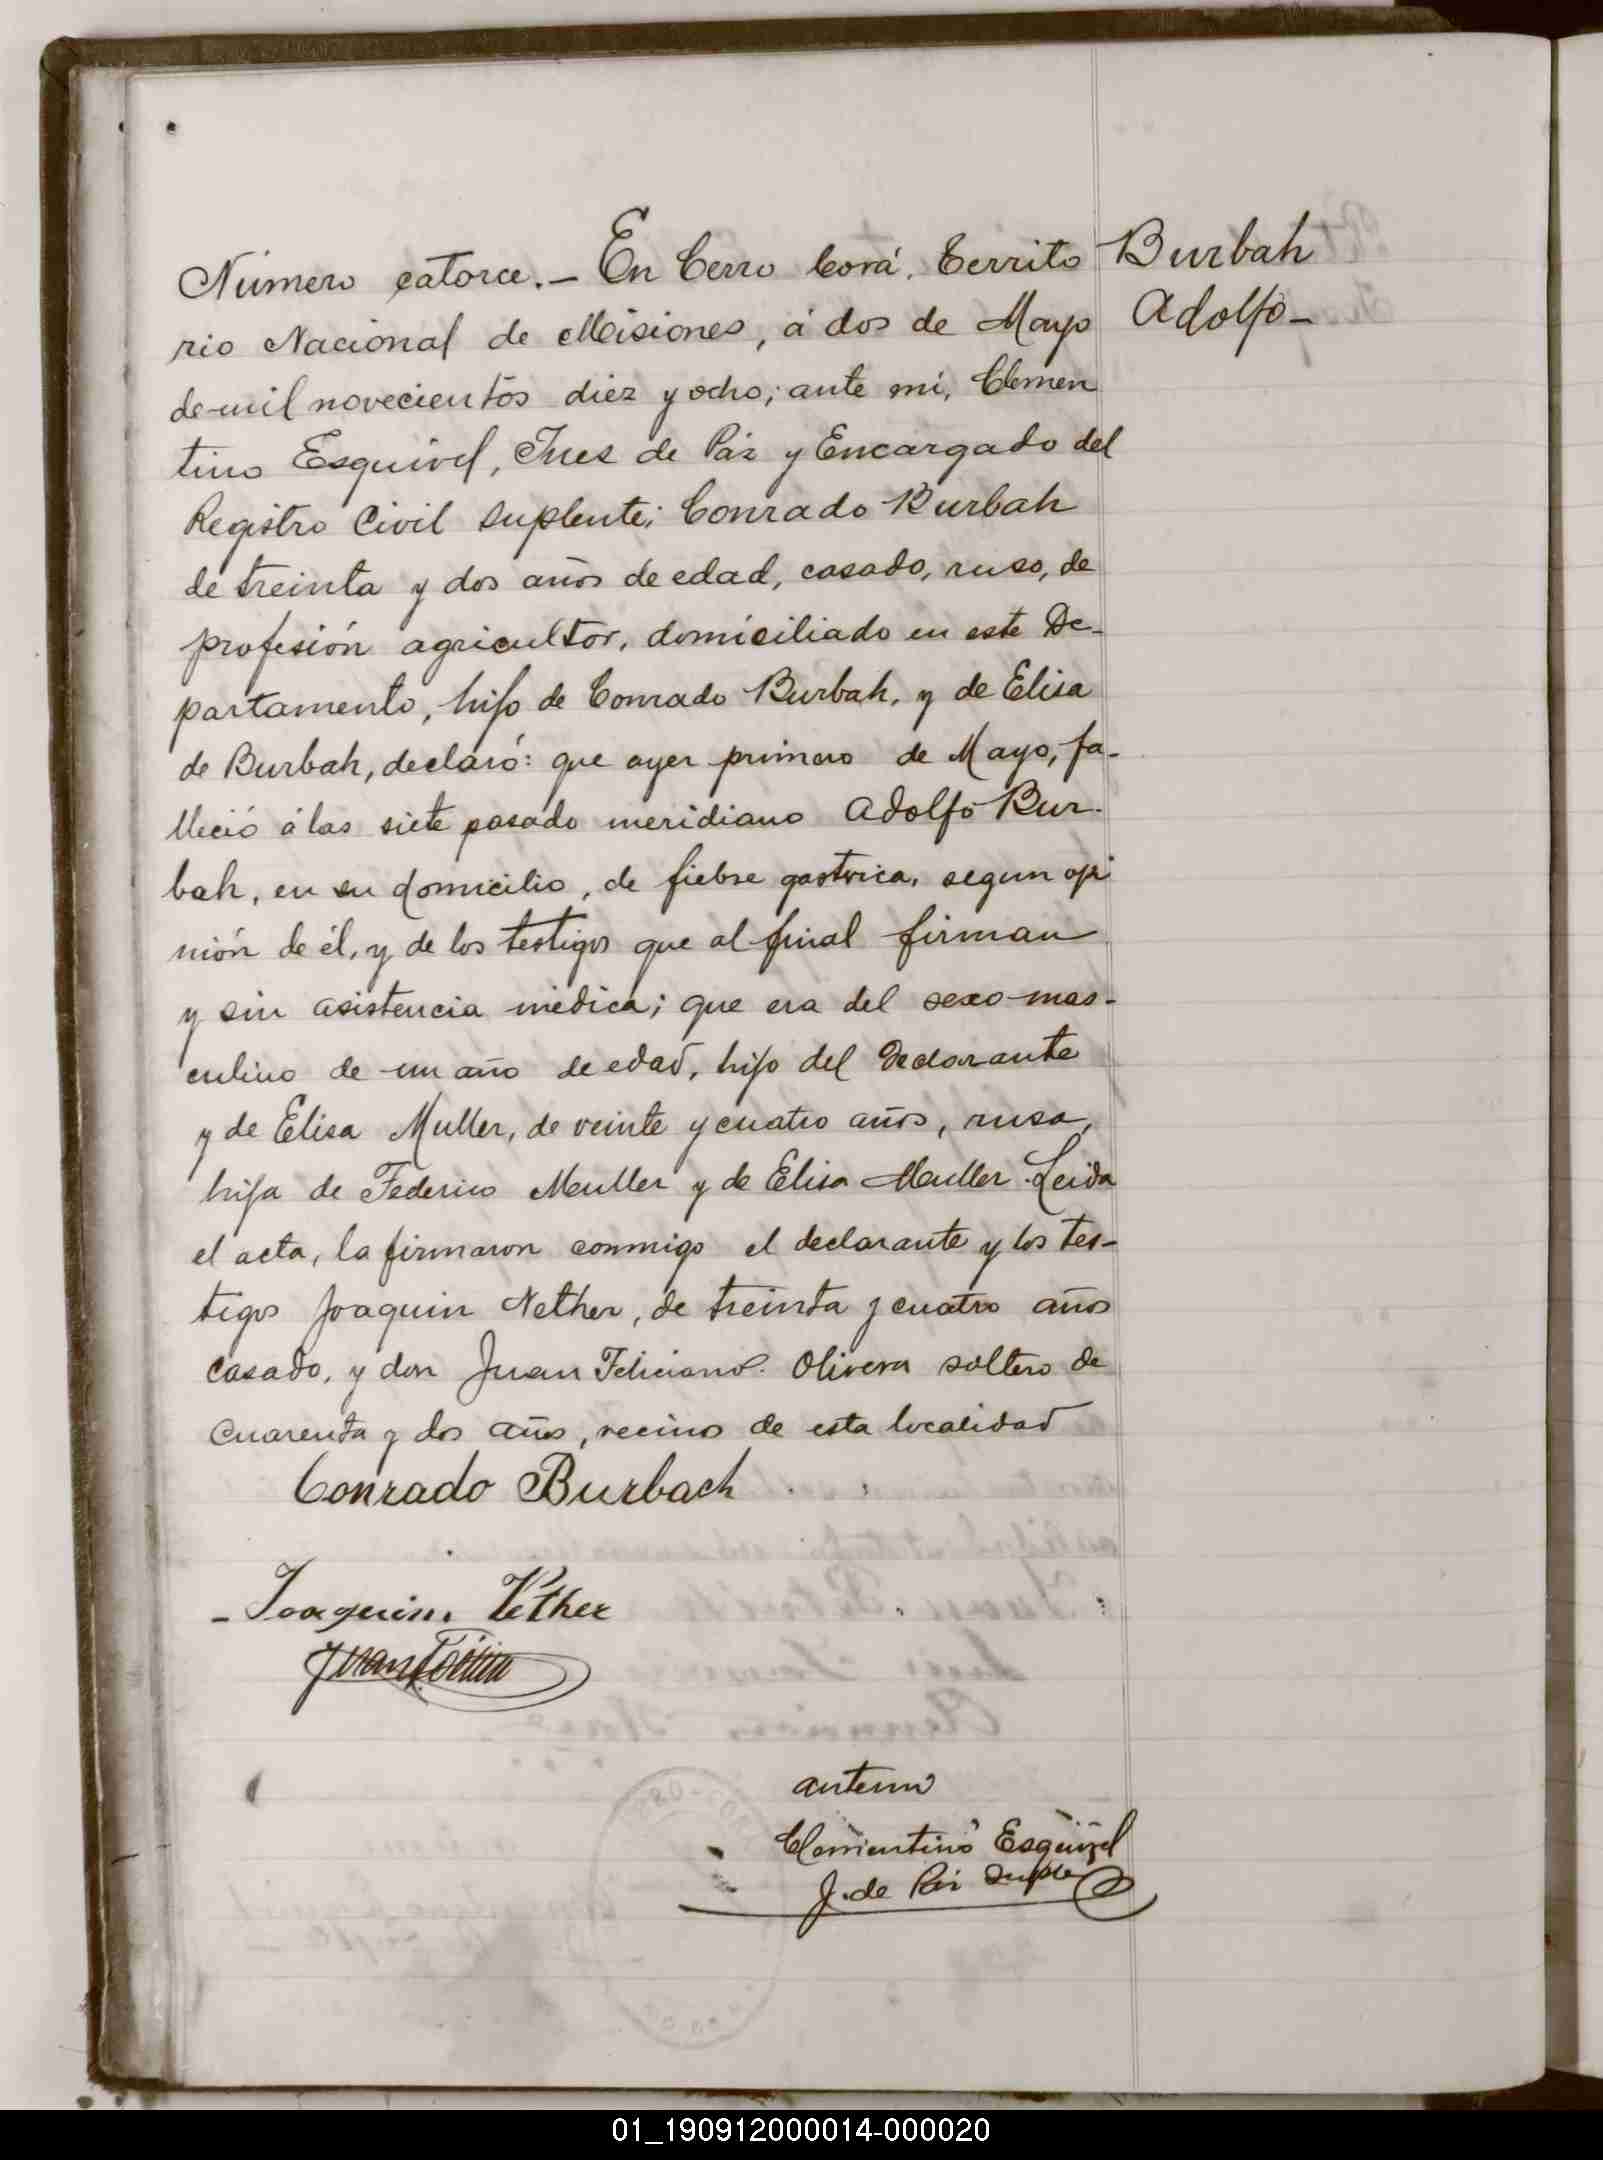 Número catorce.- En Cerro Corá, Territo
Burbah
Adolfo-
rio Nacional de Misiones, á dos de Mayo
de mil novecientos diez y ocho; ante mi, Clemen
tino Esquivel, Juez de Paz y Encargado del
Registro Civil Suplente; Conrado Burbah
de treinta y dos años de edad, casado, ruso, de
profesión agricultor, domiciliado en este De-
partamento, hijo de Conrado Burbah, y de Elisa
de Burbah, declaró: que ayer primero de Mayo, fa-
lleció á las siete pasado meridiano Adolfo Bur-
bah, en su domicilio, de fiebre gastrica, segun opi
nión de él, y de los testigos que al final firman
y sin asistencia médica; que era del sexo mas-
culino de un año de edad, hijo del declarante
y de Elisa Muller, de veinte y cuatro años, rusa,
hija de Federico Muller y de Elisa Muller. Leida
el acta, la firmaron conmigo el declarante y los tes-
tigos Joaquin Nether, de treinta y cuatro años
casado, y don Juan Feliciano Olivera soltero de
cuarenta y dos años, vecino de esta localidad
Conrado Burbach
- Joaquin Vether
Juan
ante mi
Clementino Esquivel
J. de Paz Suple
01_190912000014-000020